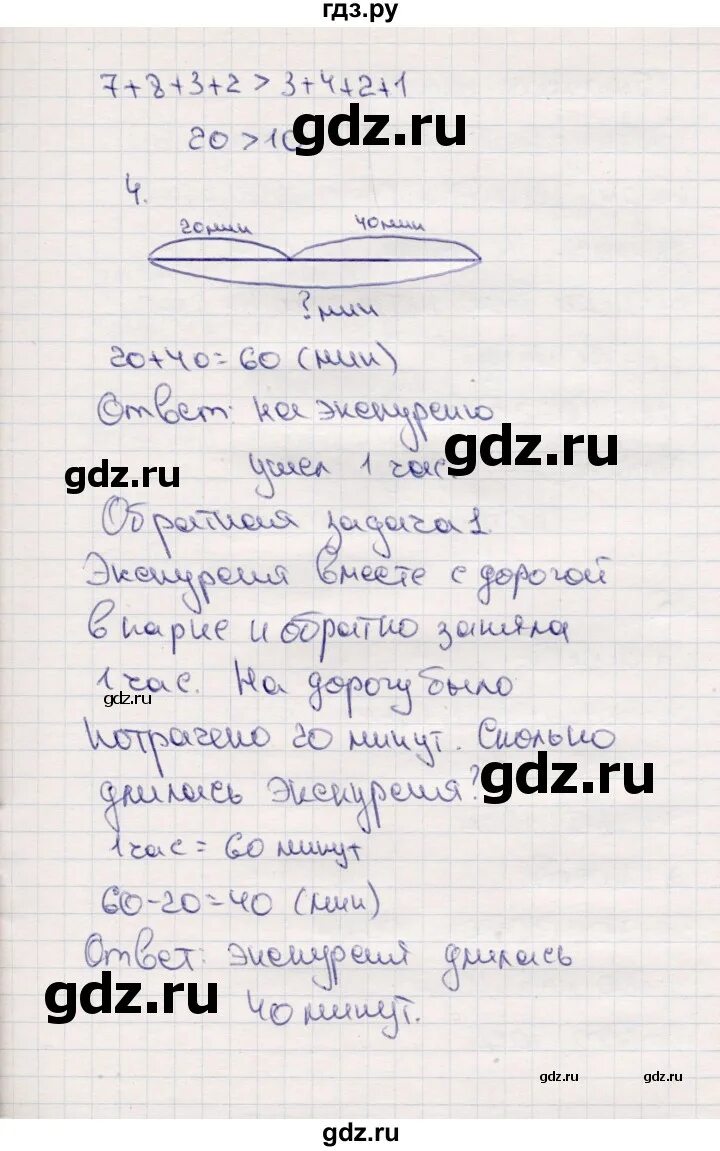 гдз.ру
7+8+3+2 > 3+4+2+1
20 > 10
gdz.ru
4.
20мин 40мин
?мин
20+40=60 (мин)
Ответ: на экскурсию
gdz.ru
gdz.ru
ушел 1 час
Обратная задача 1
Экскурсия вместе с дорогой
в парке и обратно заняла
1 час. На дорогу было
gdz.ru
потрачено 20 минут. Сколько
gdz.ru
длилась экскурсия?
1 час = 60 минут
60-20=40 (мин)
Ответ: экскурсия длилась
gdz.ru
40 минут.
gdz.ru gdz.ru
gdz.ru